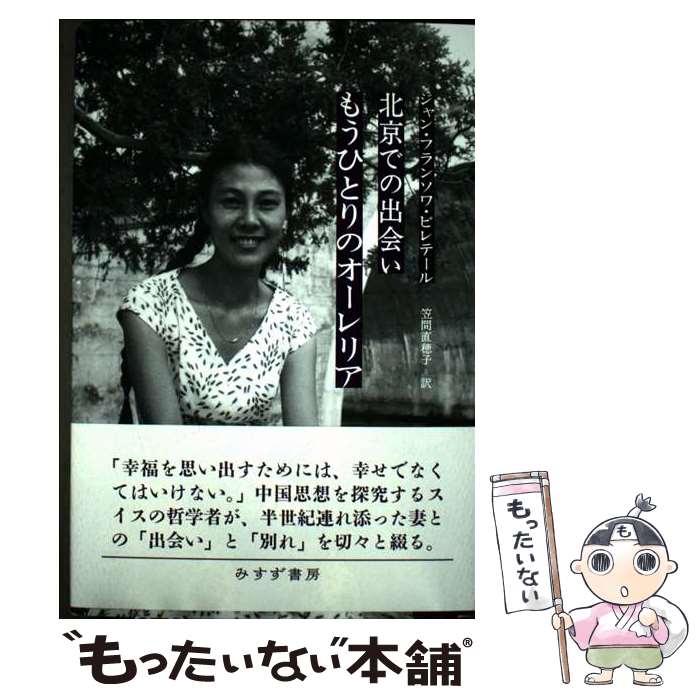 ジャン・フランソワ・ビレテール
北京での出会い
もうひとりのオーレリア
笠間直穂子 訳
「幸福を思い出すためには、幸せでなく
てはいけない。」中国思想を探究するス
イスの哲学者が、半世紀連れ添った妻と
の「出会い」と「別れ」を切々と綴る。
みすず書房
もったいない
も
“もったいない”本舗®